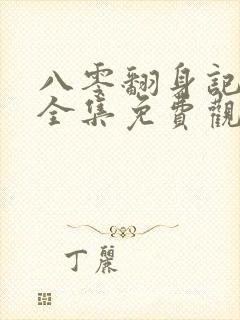 八零翻身記
全集免費觀
丁麗